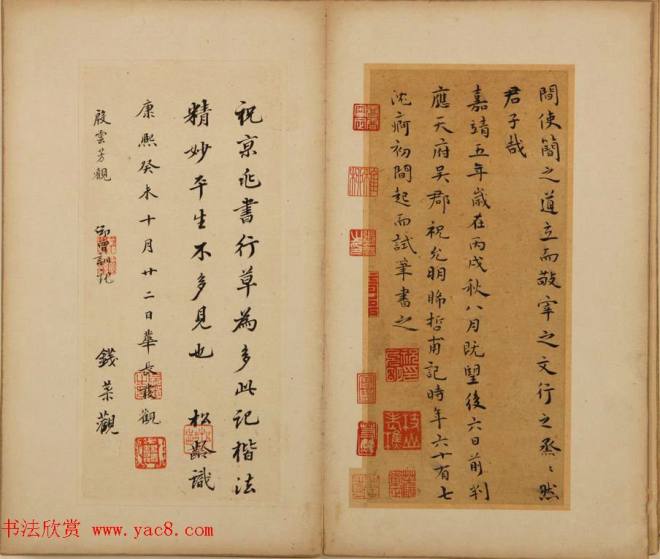 間使簡之道立而敬宰之文行之烝〻然
君子哉
嘉靖五年歲在丙戌秋八月既望後六日前判
應天府吳郡祝允明晞哲甫記時年六十有七
沈痾初間起而試筆書之
祝京兆書行草為多此記楷法
精妙平生不多見也 松齡識
康熙癸未十月廿二日華長發觀
殷雲芳觀 曾訓記
錢荣觀
书法欣赏 www.yac8.com